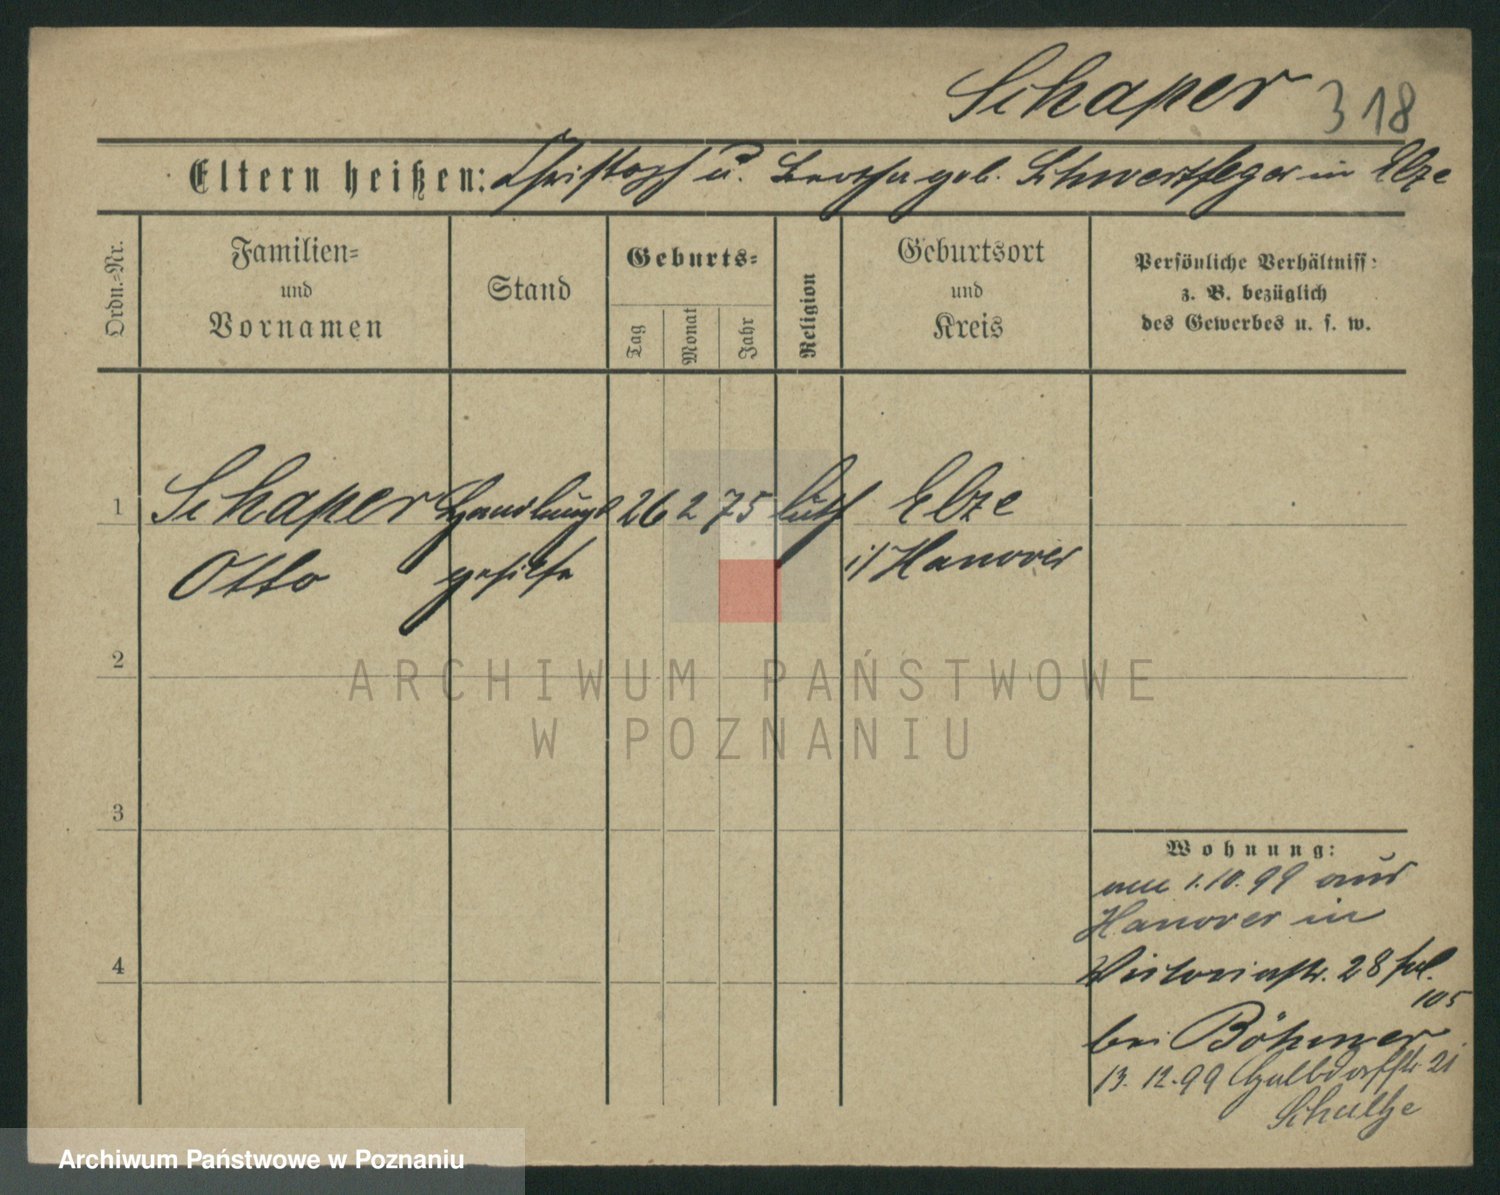 Schaper 318
Eltern heißen: Christoph u. Bertha geb. Schwertfeger in Elze
Ordn.-Nr.
Familien-
und
Vornamen
Stand
Geburts-
Tag
Monat
Jahr
Religion
Geburtsort
und
Kreis
Persönliche Verhältniss:
z. B. bezüglich
des Gewerbes u. s. w.
1 Schaper Handlungs 26 2 75 luth Elze
Otto gehilfe i/ Hanover
2
ARCHIWUM PAŃSTWOWE
W POZNANIU
3
Wohnung:
am 1.10.99 aus
Hanover in
4
Victoriastr. 28
105
bei Böhmer
13. 12. 99 Halbdorfstr 21
Schultze
Archiwum Państwowe w Poznaniu